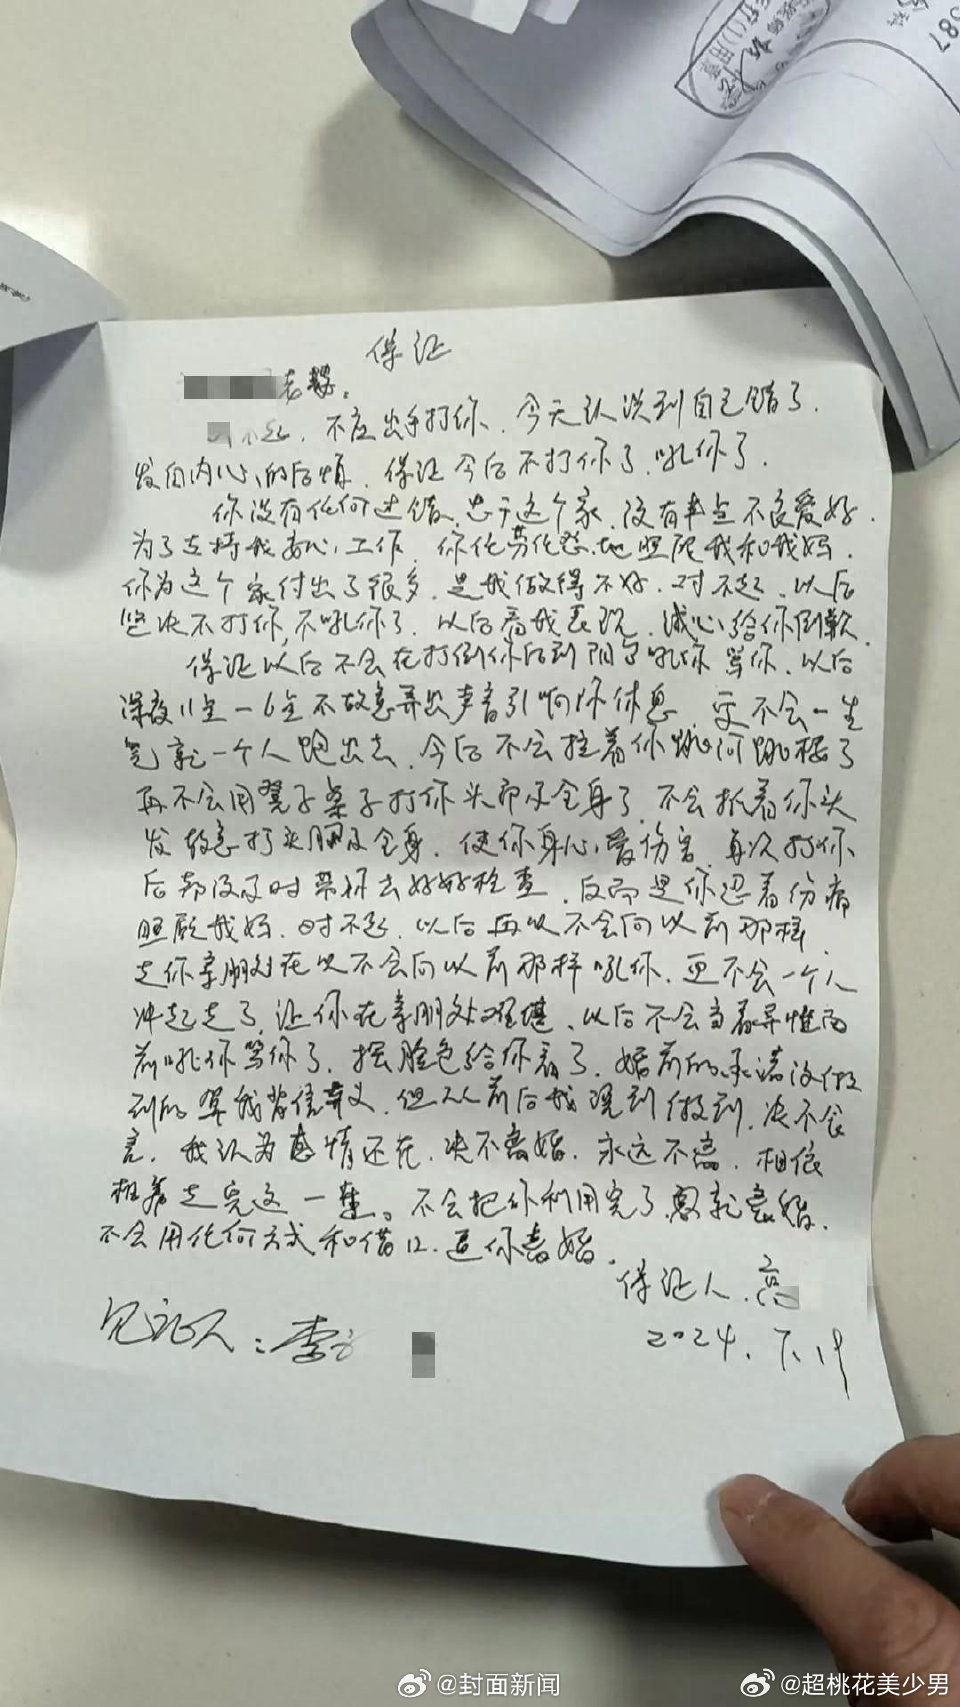 587
保证
老婆.
不起. 不应出手打你. 今天认识到自己错了.
发自内心的后悔. 保证今后不打你了. 吼你了.
你没有任何过错. 忠于这个家. 没有半点不良爱好.
为了支持我安心工作. 你任劳任怨地照顾我和我妈.
你为这个家付出了很多. 是我做得不好. 对不起. 以后
坚决不打你, 不吼你了. 以后看我表现. 诚心给你倒歉.
保证以后不会在打倒你后到阳台吼你骂你. 以后
深夜11点一6点不故意弄出声音引响你休息. 更不会一生
气就一个人跑出去. 今后不会拉着你跳河跳楼了
再不会用凳子桌子打你头部及全身了. 不会抓着你头
发故意打头胸及全身. 使你身心受伤害. 每次打你
后都没及时带你去好好检查. 反而是你忍着伤痛
照顾我妈. 对不起. 以后再以不会向以前那样
走你亲朋处在以不会向以前那样吼你. 更不会一个人
冲起走了, 让你在亲朋处难堪. 以后不会当着异性面
前吼你骂你了. 摆脸色给你看了. 婚前的承诺没做
到的算我背信弃义. 但从前后我说到做到. 决不食
言. 我认为感情还在. 决不离婚. 永远不离. 相依
相养走完这一辈。不会把你利用完了就离婚.
不会用任何方式和借口. 逼你离婚.
保证人. 高
2024. 7. 19
见证人: 李
@封面新闻
@超桃花美少男